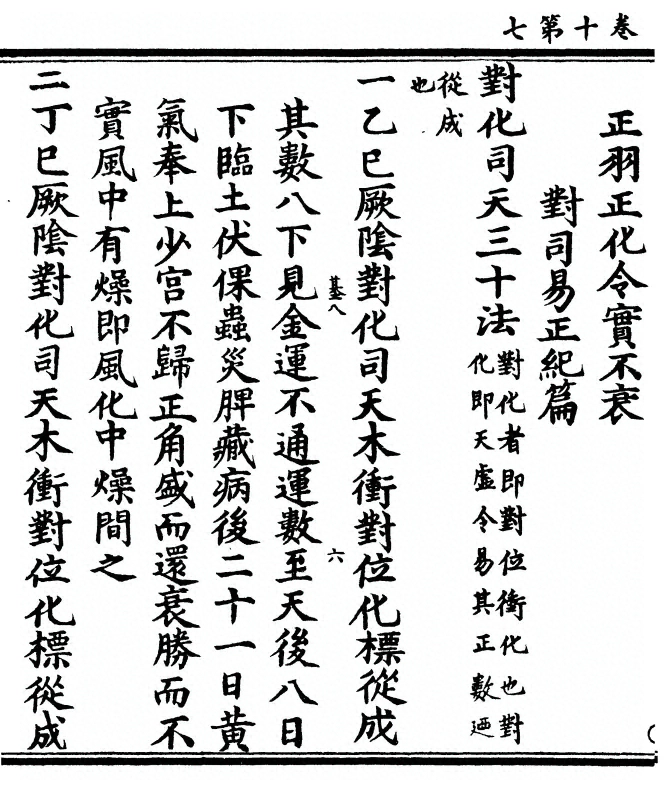 卷十第七
正羽正化令實不衰
對司易正紀篇
對化司天三十法對化者即對位衝化也對化即天虛令易其正數迺
從成也
一乙巳厥陰對化司天木衝對位化標從成
其數八下見金運不通運數至天後八日
下臨土伏倮蟲災脾藏病後二十一日黄
氣奉上少宮不歸正角盛而還衰勝而不
實風中有燥即風化中燥間之
二丁巳厥陰對化司天木衝對位化標從成